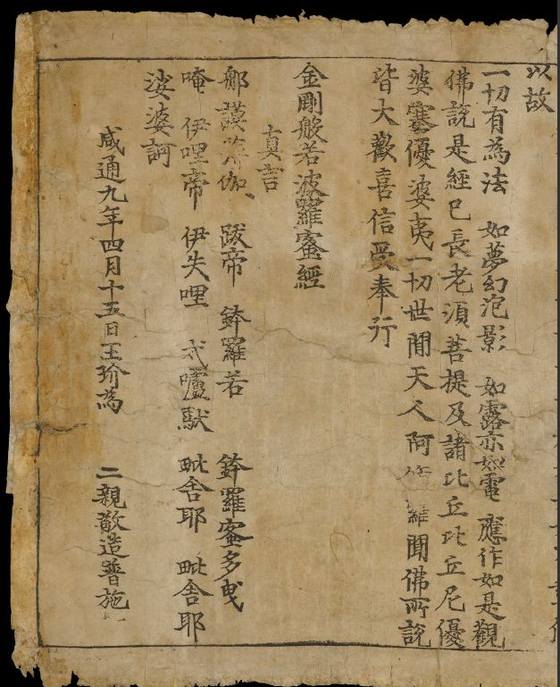 以故
一切有為法 如夢幻泡影 如露亦如電 應作如是觀
佛說是經已長老須菩提及諸比丘比丘尼優
婆塞優婆夷一切世間天人阿脩羅聞佛所說
皆大歡喜信受奉行
金剛般若波羅蜜經
真言
那謨薄伽 跋帝 鉢羅若 鉢羅蜜多曳
唵 伊哩帝 伊失哩 戍嚧馱 毗舍耶 毗舍耶
娑婆訶
咸通九年四月十五日王玠為 二親敬造普施